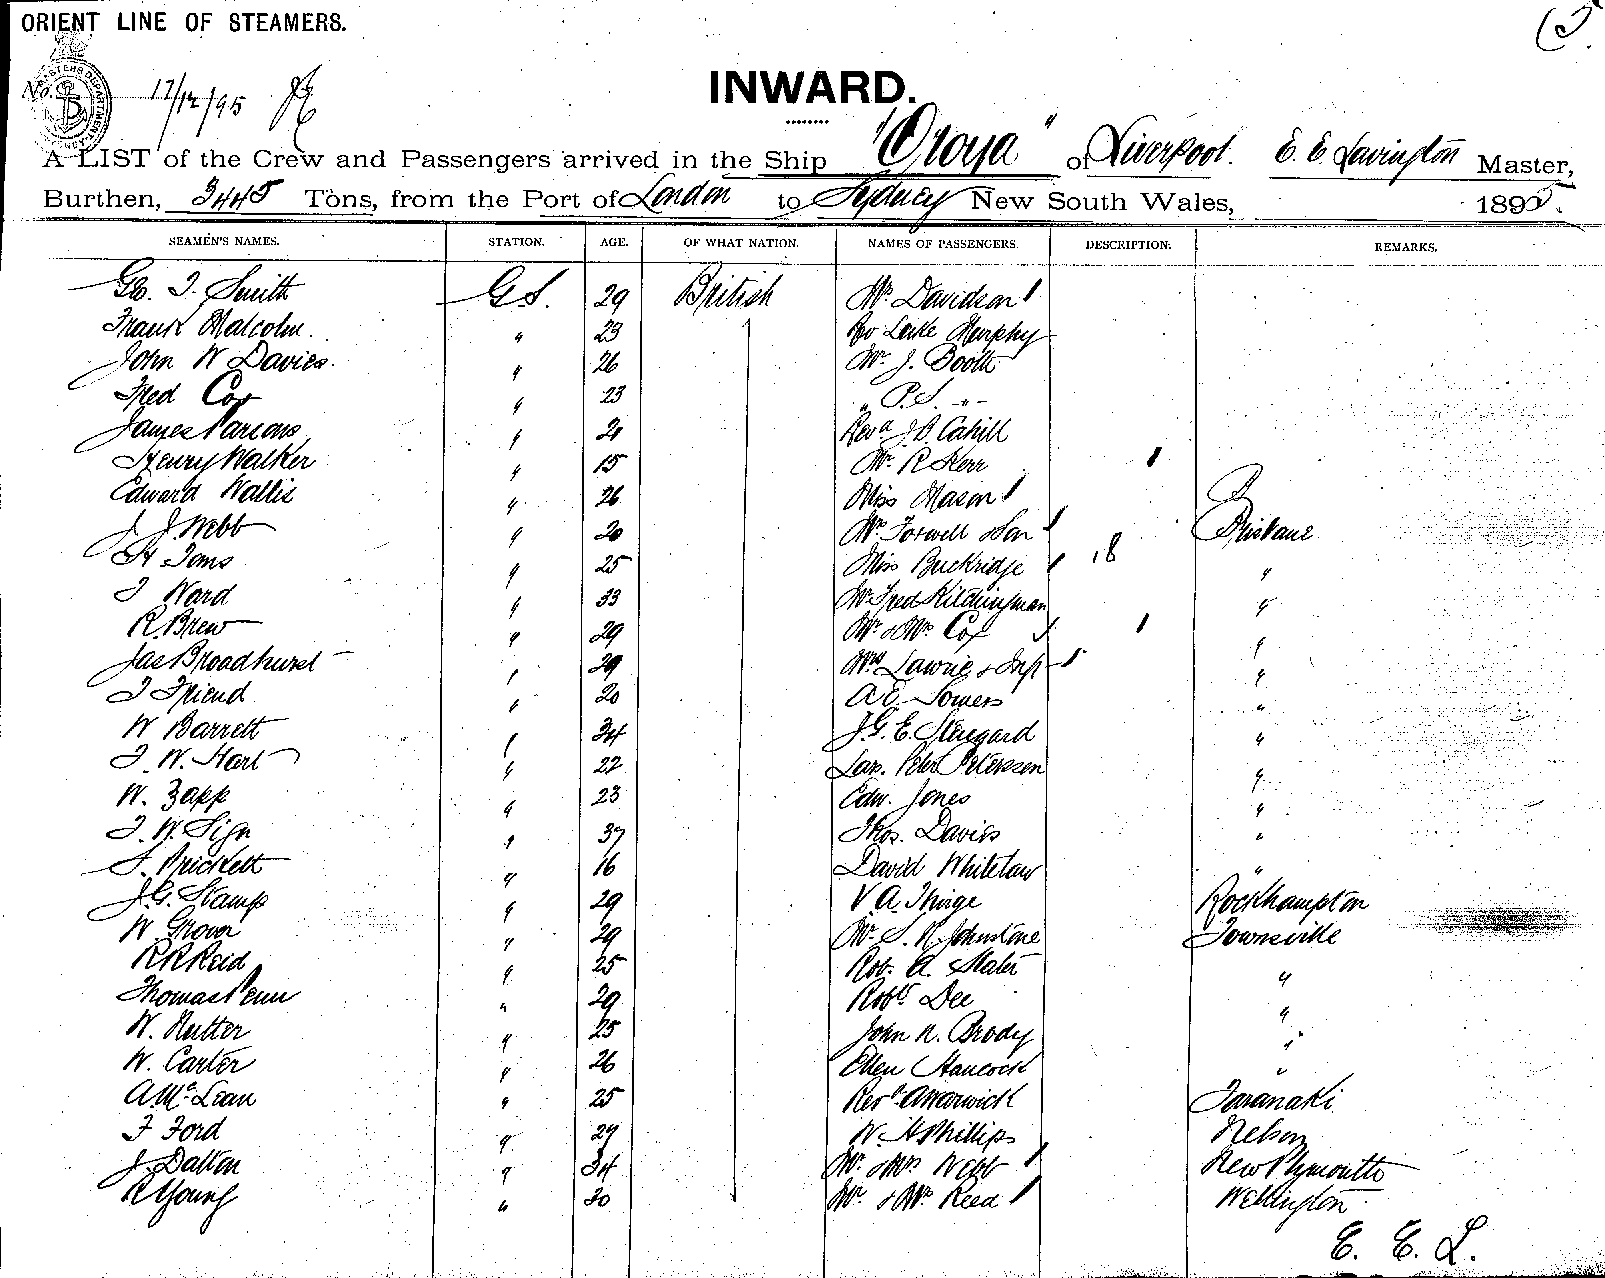 ORIENT LINE OF STEAMERS.
(5
No. 17/12/95
INWARD.
A LIST of the Crew and Passengers arrived in the Ship "Oroya" of Liverpool. E. E. Lavington Master,
Burthen, 3445 Tons, from the Port of London to Sydney New South Wales, 1895.
SEAMEN'S NAMES. STATION. AGE. OF WHAT NATION. NAMES OF PASSENGERS. DESCRIPTION. REMARKS.
Geo. T. Smith G.S. 29 British Mr. Davidson
Frank Malcolm. " 23 Luke Murphy
John W Davies. " 26 Mr. J. Booth
Fred Cox " 23 " P.S. -"-
James Parsons " J.B. Cahill
Henry Walker " 15 Mr. R Kerr
Edward Wallis " 26 Miss Mason
J. J. Webb " 20 Mr. & Son Brisbane
H Toms " 25 Miss Buckridge 18 "
T Ward " 33 Mr Fred Kitchingman "
R. Brew " 29 Mr. & Mrs. Cox "
Jas Broadhurst " 29 Mrs Lawrie & Inft "
T Friend " 20 A.E. Somers "
W Barrett " 34 J.G.E. "
T. W. Hart " 22 Lars. Peter Petersen "
W. Zapp " 23 Edw. Jones "
T. W. Sign " 37 Thos. Davies "
Prickett " 16 David Whitelaw "
J.G. Stamp " 29 V. A. Rockhampton
W " 29 Mr. S. Johnstone Townsville
R R Reid " 25 Rob. A. Slater "
Thomas Penn " 29 Robt. Dee "
W. Rutter " 25 John Brody "
W. Carter " 26 Ellen Hancock "
A. McLean " 25 Revd. Warwick Taranaki
F Ford " 29 W. H Phillips Nelson
J. Dalton " 34 Mr. & Mrs Webb New Plymouth
R Young " 30 Mr. & Mrs Reed Wellington
E. E. L.